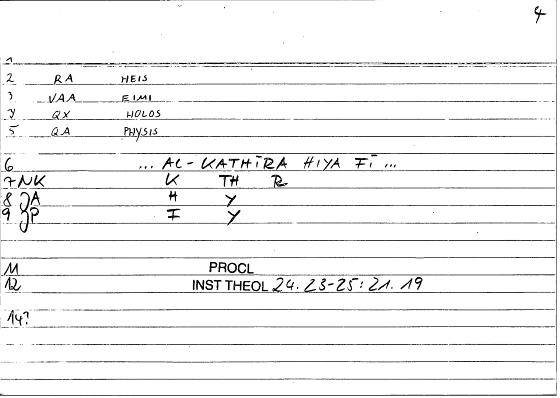 4
1
2 RA HEIS
3 VAA EIMI
4 QX HOLOS
5 QA PHYSIS
6 ... AL-KATHĪRA HIYA FĪ ...
7 NK K TH R
8 JA H Y
9 JP F Y
11 PROCL
12 INST THEOL 24.23-25:21.19
14?